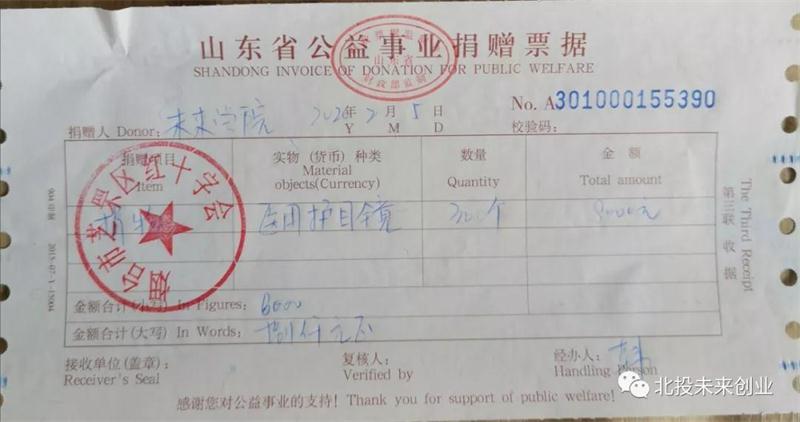 山东省公益事业捐赠票据
SHANDONG INVOICE OF DONATION FOR PUBLIC WELFARE
山东省
财政部监制
No. A301000155390
捐赠人 Donor: 未来学院 2020年 2月 5日 校验码:
Y M D
捐赠项目 实物 (货币) 种类 数量 金额
Item Material objects(Currency) Quantity Total amount
捐物 医用护目镜 300个
烟台市芝罘区红十字会
金额合计(小写) In Figures:
金额合计(大写) In Words: 捌仟元正
接收单位(盖章): 复核人: 经办人:
Receiver's Seal Verified by Handling Person
感谢您对公益事业的支持! Thank you for support of public welfare!
第三联 收据
The Third Receipt
北投未来创业